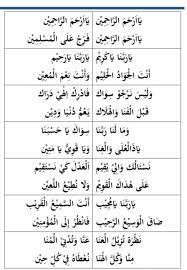 يَاأَرْحَمَ الرَّاحِمِيْنَ يَاأَرْحَمَ الرَّاحِمِيْنَ
يَاأَرْحَمَ الرَّاحِمِيْنَ فَرِّجْ عَلَى الْمُسْلِمِيْنَ
يَارَبَّنَا يَاكَرِيْمُ يَارَبَّنَا يَارَحِيْمُ
أَنْتَ الْجَوَادُ الْحَلِيْمُ وَأَنْتَ نِعْمَ الْمُعِيْنِ
وَلَيْسَ نَرْجُوْ سِوَاكَ فَادْرِكْ اِلٰهِيْ دَرَاكَ
قَبْلَ الْفَنَا وَالْهَلَاكِ يَعُمُّ دُنْيَا وَدِيْنِ
وَمَا لَنَا رَبَّنَا سِوَاكَ يَا حَسْبَنَا
يَاذَاالْعُلَى وَالْغِنَا وَيَا قَوِيُّ يَا مَتِيْنِ
نَسْئَالُكَ وَالِيْ يُقِيْمُ اَلْعَدْلَ كَيْ نَسْتَقِيْمَ
عَلَى هُدَاكَ الْقَوِيْمِ وَلَا نُطِيْعُ اللَّعِيْنَ
يَارَبَّنَا يَامُجِيْبُ أَنْتَ السَّمِيْعُ الْقَرِيْبُ
ضَاقَ الْوَسِيْعُ الرَّحِيْبُ فَانْظُرْ اِلَى الْمُؤْمِنِيْنَ
نَظْرَةً تُزِيْلُ الْعَنَا عَنَّا وَتُدْنِيْ الْمُنَا
مِنَّا وَكُلَّ الْهَنَا نُعْطَاهُ فِيْ كُلِّ حِيْنِ